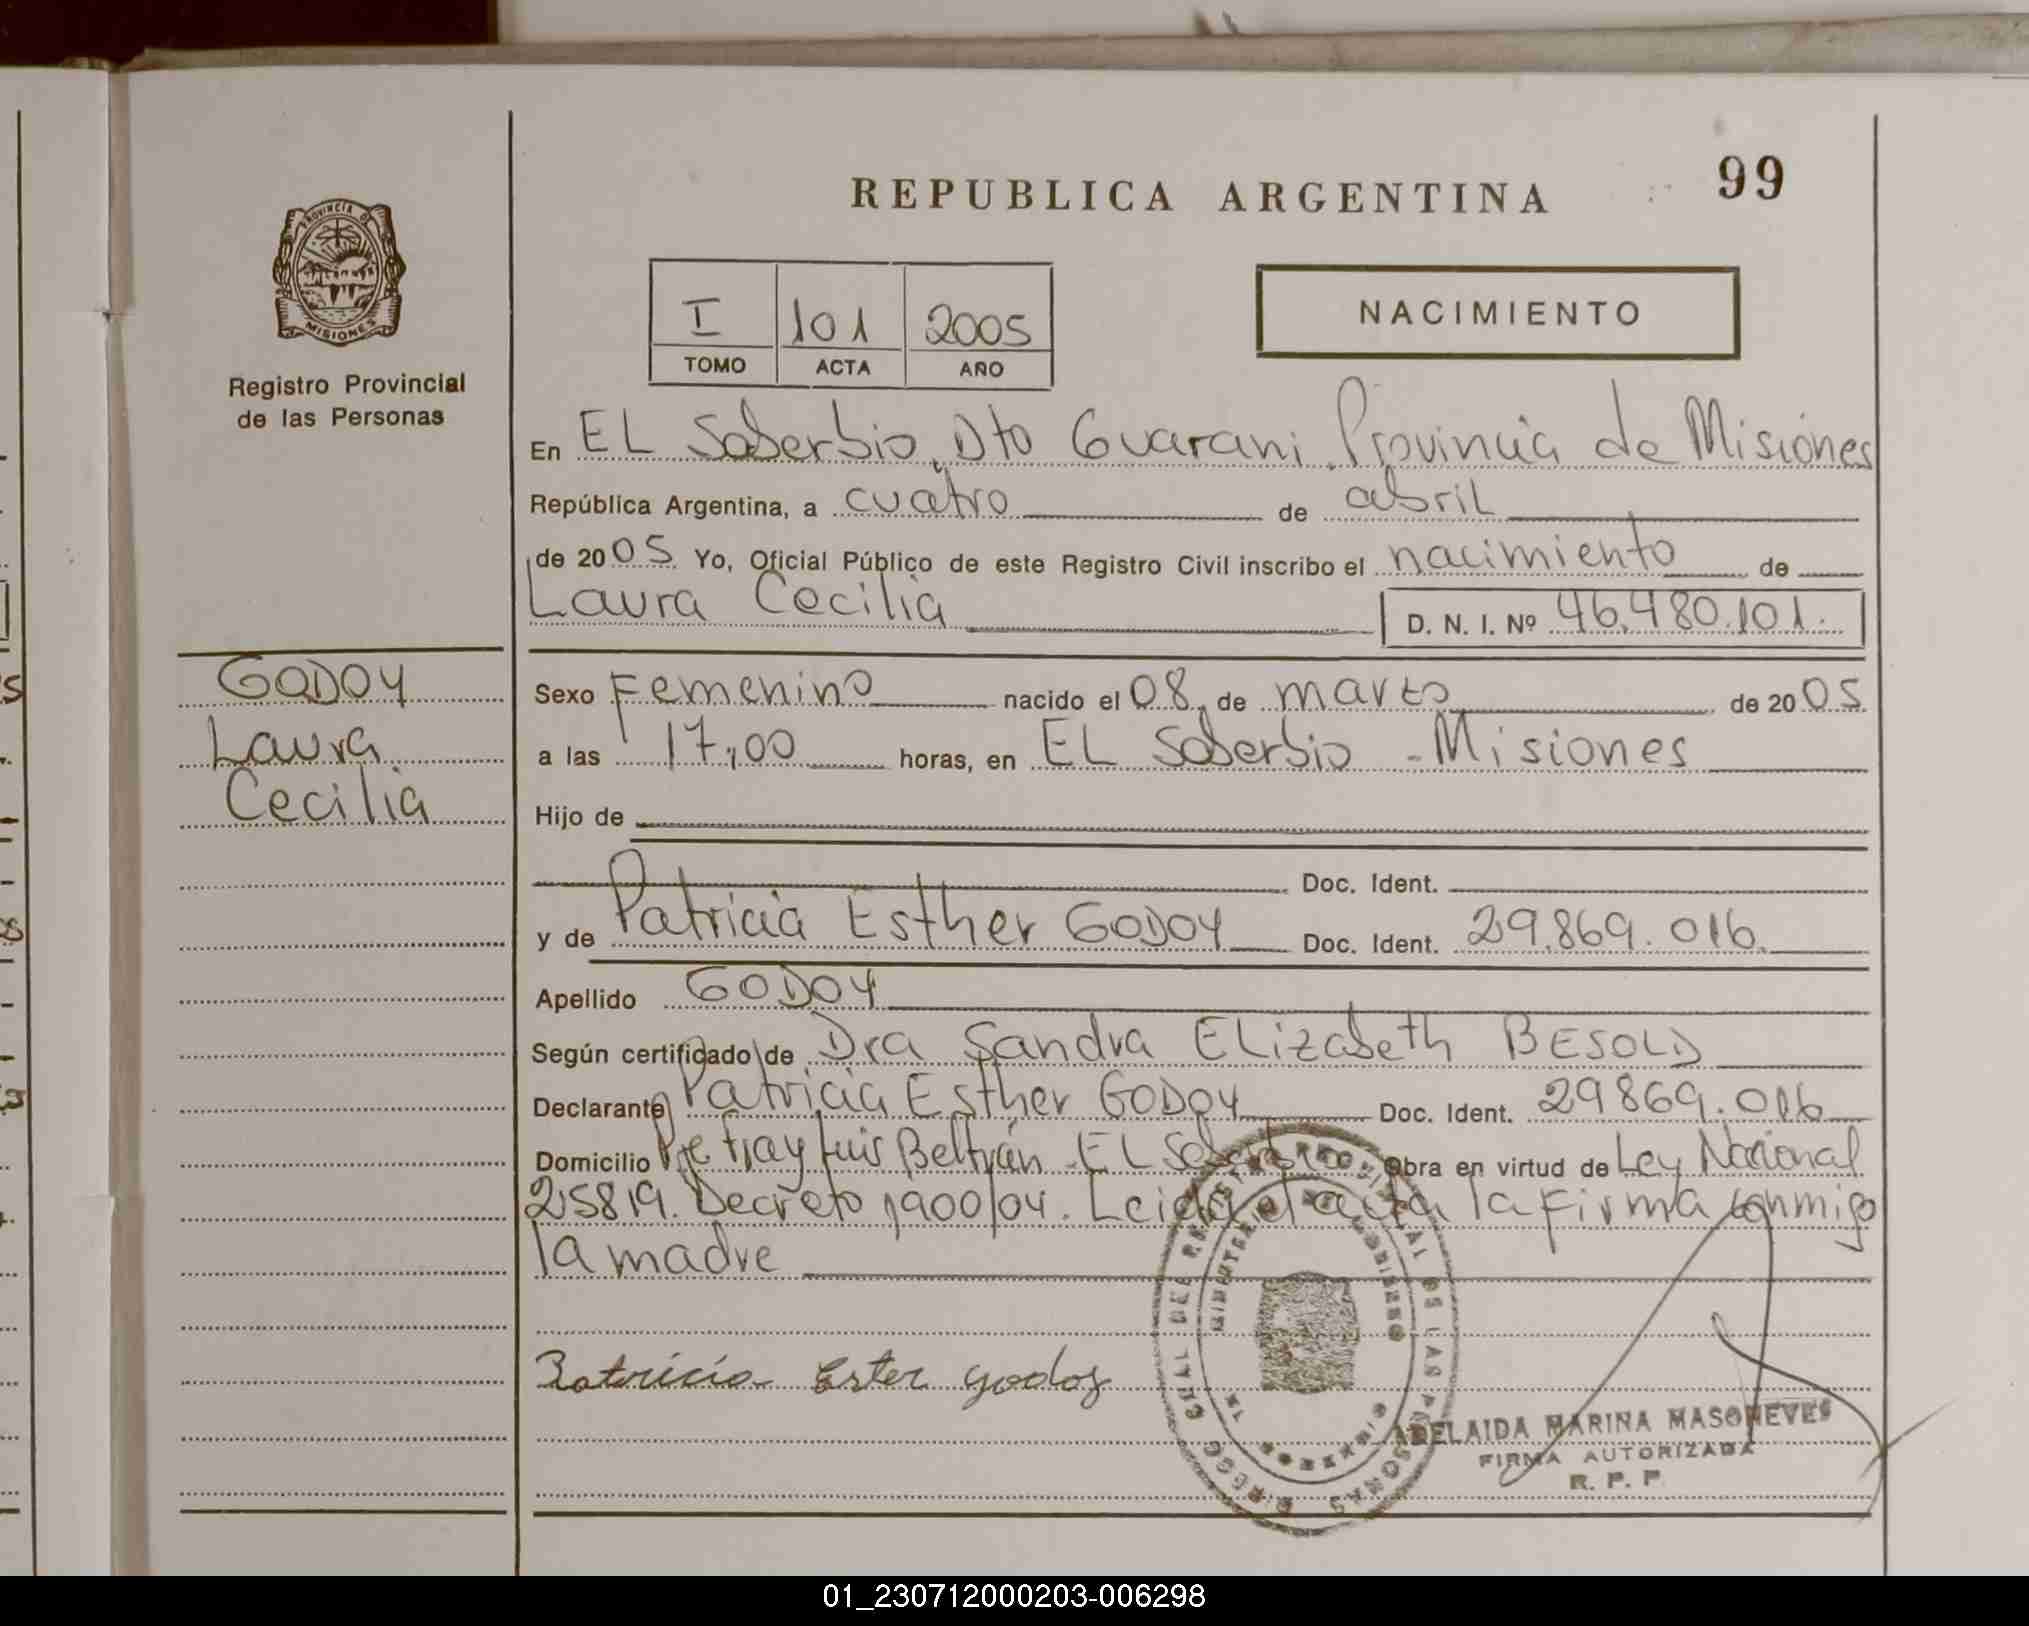 REPUBLICA ARGENTINA
99
PROVINCIA DE
MISIONES
Registro Provincial
de las Personas
I 101 2005
TOMO ACTA AÑO
NACIMIENTO
En EL Soberbio, Dto Guarani Provincia de Misiones
República Argentina, a cuatro de abril
de 2005 Yo, Oficial Público de este Registro Civil inscribo el nacimiento de
Laura Cecilia D. N. I. Nº 46.480.101.
GODOY
Laura
Cecilia
Sexo Femenino nacido el 08 de marzo de 2005
a las 17,00 horas, en EL Soberbio - Misiones
Hijo de
Doc. Ident.
y de Patricia Esther GODOY Doc. Ident. 29.869.016.
Apellido GODOY
Según certificado de Dra Sandra ELizabeth BESOLD
Declarante Patricia Esther GODOY Doc. Ident. 29869.016
Domicilio Pje Fray Luis Beltrán - EL Soberbio Obra en virtud de Ley Nacional
25819. Decreto 1900/04. Leida el acta la firma conmigo
la madre
Patricia Ester godoy
ADELAIDA MARINA MASONEVES
FIRMA AUTORIZADA
R. P. P.
01_230712000203-006298